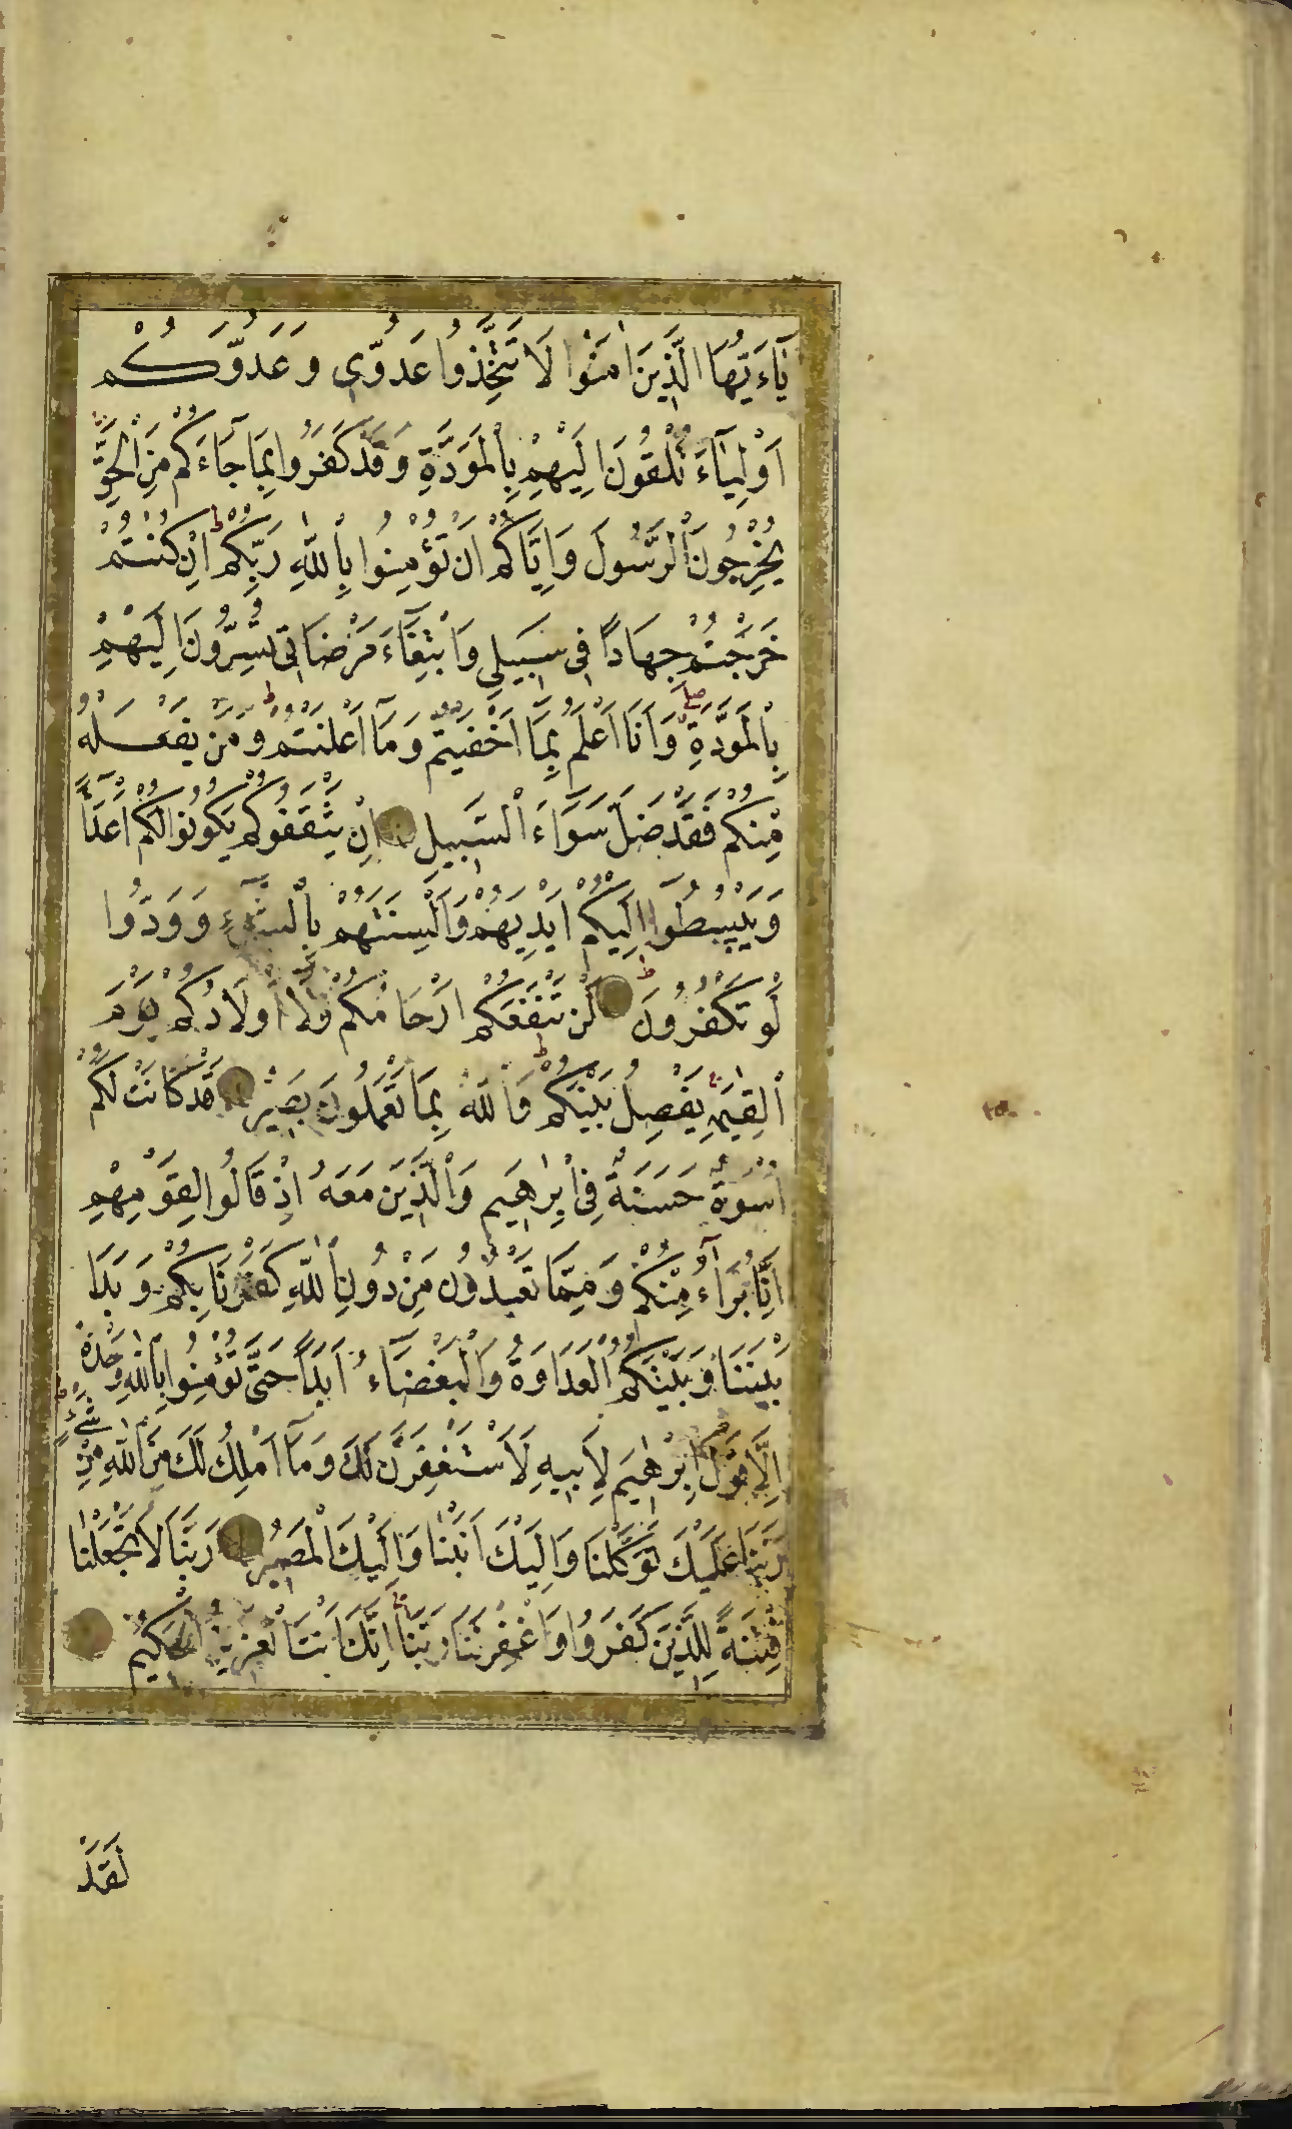 يَٓاءَيُّهَا الَّذ۪ينَ اٰمَنُوا لَا تَتَّخِذُوا عَدُوّ۪ى وَعَدُوَّكُمْ
اَوْلِيَٓاءَ تُلْقُونَ اِلَيْهِمْ بِالْمَوَدَّةِ وَقَدْ كَفَرُوا بِمَا جَٓاءَكُمْ مِنَ الْحَقِّ
يُخْرِجُونَ الرَّسُولَ وَاِيَّاكُمْ اَنْ تُؤْمِنُوا بِاللّٰهِ رَبِّكُمْ اِنْ كُنْتُمْ
خَرَجْتُمْ جِهَادًا ف۪ى سَب۪يل۪ى وَابْتِغَٓاءَ مَرْضَات۪ى تُسِرُّونَ اِلَيْهِمْ
بِالْمَوَدَّةِ وَاَنَا اَعْلَمُ بِمَٓا اَخْفَيْتُمْ وَمَٓا اَعْلَنْتُمْ وَمَنْ يَفْعَلْهُ
مِنْكُمْ فَقَدْ ضَلَّ سَوَٓاءَ السَّب۪يلِ اِنْ يَثْقَفُوكُمْ يَكُونُوا لَكُمْ اَعْدَٓاءً
وَيَبْسُطُٓوا اِلَيْكُمْ اَيْدِيَهُمْ وَاَلْسِنَتَهُمْ بِالسُّٓوءِ وَوَدُّوا
لَوْ تَكْفُرُونَ لَنْ تَنْفَعَكُمْ اَرْحَامُكُمْ وَلَٓا اَوْلَادُكُمْ يَوْمَ
الْقِيٰمَةِ يَفْصِلُ بَيْنَكُمْ وَاللّٰهُ بِمَا تَعْمَلُونَ بَص۪يرٌ قَدْ كَانَتْ لَكُمْ
اُسْوَةٌ حَسَنَةٌ ف۪ٓى اِبْرٰه۪يمَ وَالَّذ۪ينَ مَعَهُ اِذْ قَالُوا لِقَوْمِهِمْ
اِنَّا بُرَءٰٓؤُا مِنْكُمْ وَمِمَّا تَعْبُدُونَ مِنْ دُونِ اللّٰهِ كَفَرْنَا بِكُمْ وَبَدَا
بَيْنَنَا وَبَيْنَكُمُ الْعَدَاوَةُ وَالْبَغْضَٓاءُ اَبَدًا حَتّٰى تُؤْمِنُوا بِاللّٰهِ وَحْدَهُ
اِلَّا قَوْلَ اِبْرٰه۪يمَ لِاَب۪يهِ لَاَسْتَغْفِرَنَّ لَكَ وَمَٓا اَمْلِكُ لَكَ مِنَ اللّٰهِ مِنْ شَيْءٍ
رَبَّنَا عَلَيْكَ تَوَكَّلْنَا وَاِلَيْكَ اَنَبْنَا وَاِلَيْكَ الْمَص۪يرُ رَبَّنَا لَا تَجْعَلْنَا
فِتْنَةً لِلَّذ۪ينَ كَفَرُوا وَاغْفِرْ لَنَا رَبَّنَا اِنَّكَ اَنْتَ الْعَز۪يزُ الْحَك۪يمُ
لَقَدْ